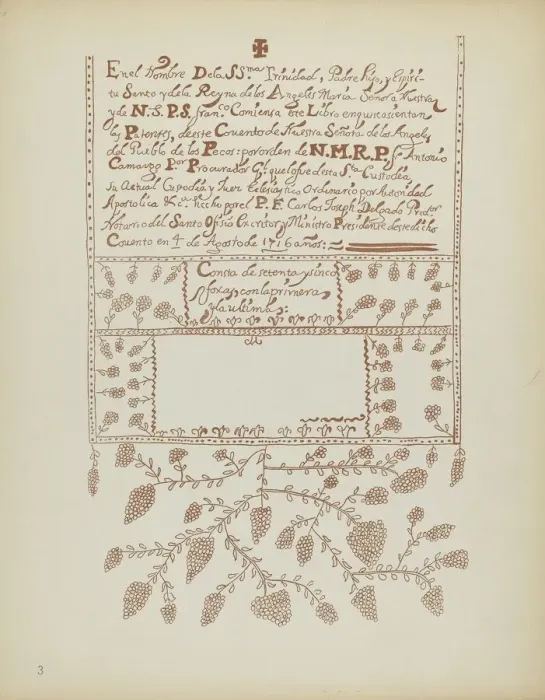 En el Nombre De la SS.ma Trinidad, Padre hijo, y Espiri-
tu Santo y de la Reyna de los Angeles Maria Señora Nuestra
y de N. S. P. S. fran.co Comiensa este Libro en que se asientan
las Patentes, de este Convento de Nuestra Señora de los Angeles
del Pueblo de los Pecos: por orden de N. M. R. P. fr Antonio
Camargo P.or Procurador G.l que lo fue desta S.ta Custodia
su Actual Custodio y Juez Eclesiastico Ordinario por Autoridad
Apostolica &c.a hecho por el P. F. Carlos Joseph Delgado Pred.or
Notario del Santo Ofisio Escritor y Ministro Presidente deste dicho
Covento en 4 de Agosto de 1716 años:
Consta de setenta y sinco
foxas con la primera
y la ultima:
3